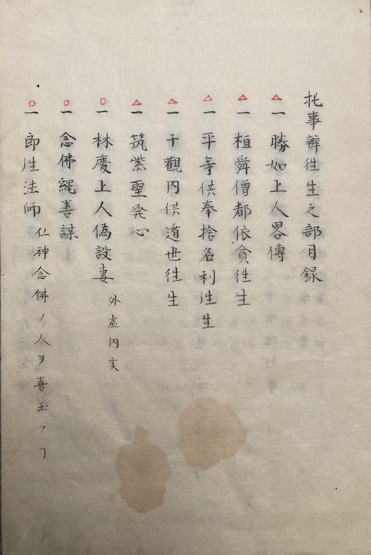 托事辨徃生之部目録
△一 勝如上人畧傳
△一 桓舜僧都依貧徃生
△一 平等供奉捨名利徃生
△一 千觀内供遁世徃生
△一 筑紫聖発心
○一 林慶上人偽設妻 外虚内実
○一 念佛縄善謀
○一 郎性法師 仁神念佛ノ人ヲ喜玉フヿ